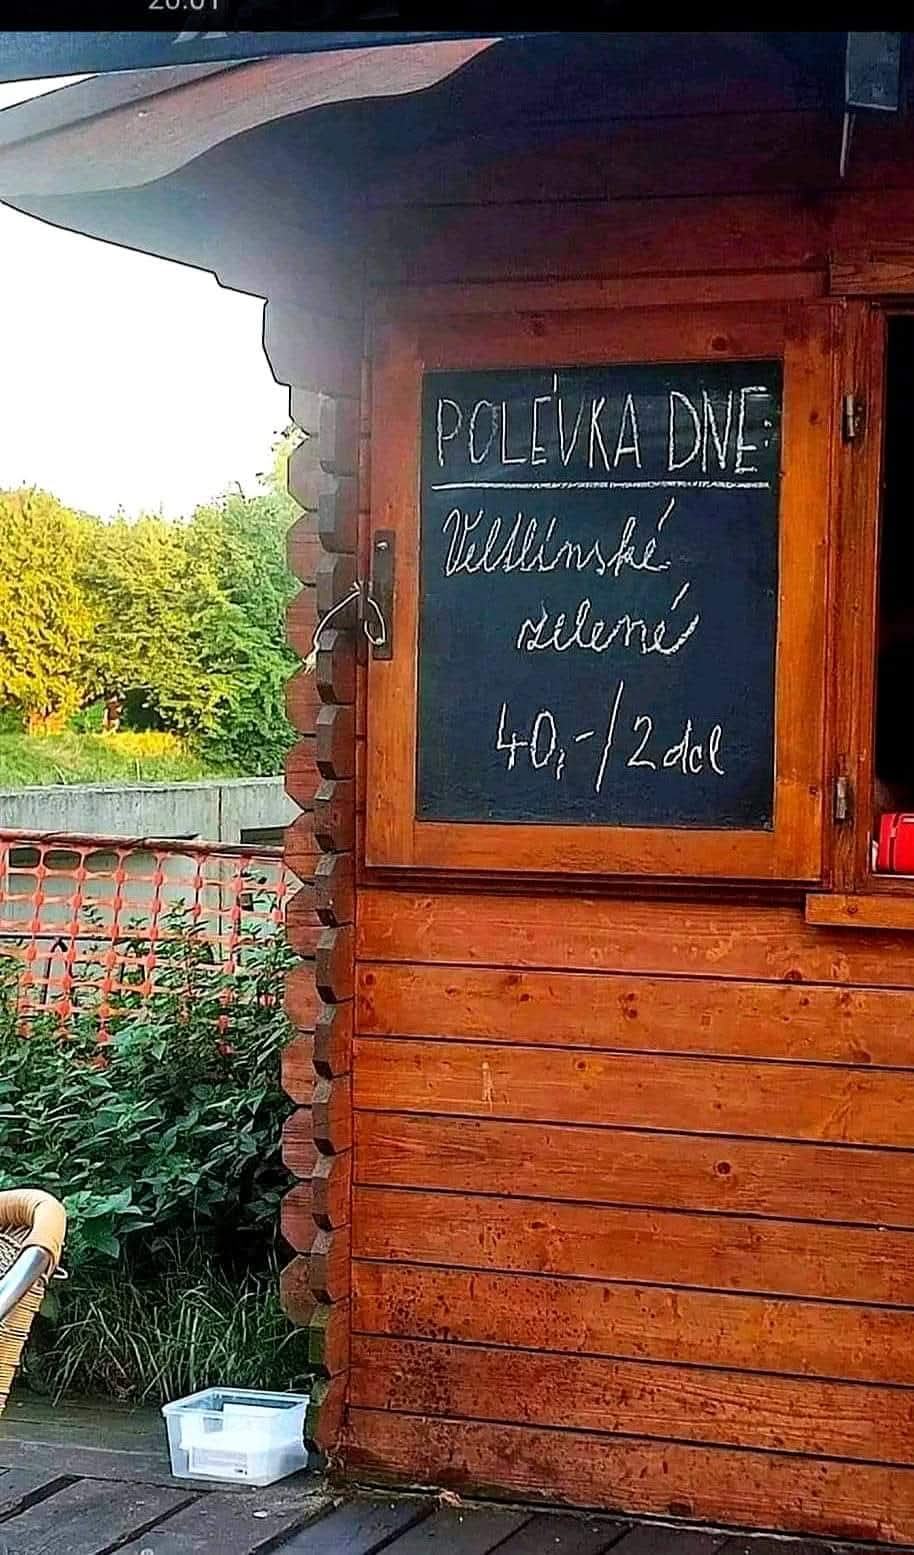 20:01
POLÉVKA DNE:
Veltlínské
zelené
40,-/2 dcl